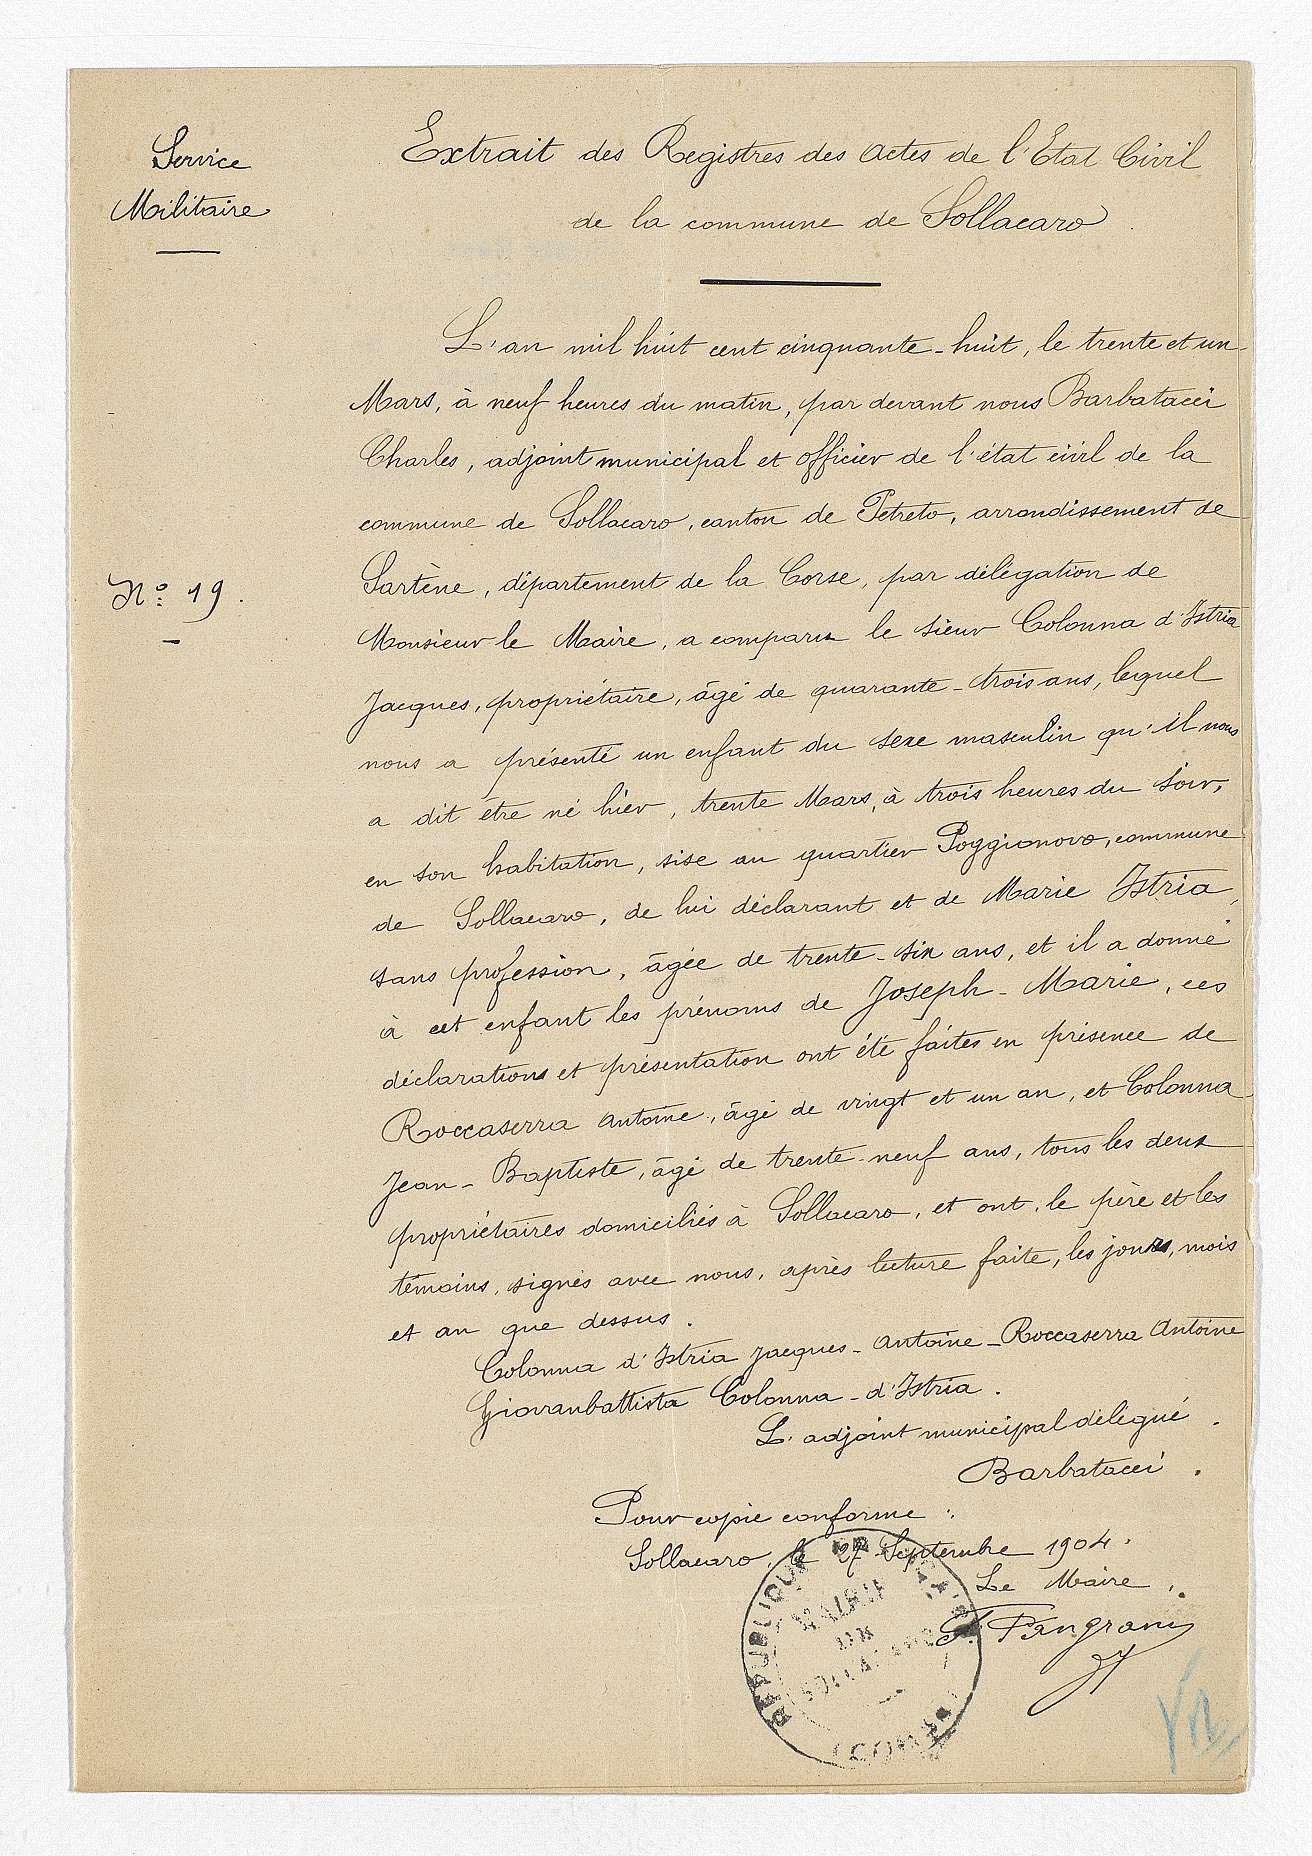 Service
Militaire
Extrait des Registres des Actes de l'Etat Civil
de la commune de Sollacaro
L'an mil huit cent cinquante-huit, le trente et un
Mars, à neuf heures du matin, par devant nous Barbatacci
Charles, adjoint municipal et officier de l'état civil de la
commune de Sollacaro, canton de Petreto, arrondissement de
Nº 19.
Sartène, département de la Corse, par délégation de
Monsieur le Maire, a comparu le sieur Colonna d'Istria
Jacques, propriétaire, âgé de quarante-trois ans, lequel
nous a présenté un enfant du sexe masculin qu'il nous
a dit être né hier, trente Mars, à trois heures du soir,
en son habitation, sise au quartier Poggionovo, commune
de Sollacaro, de lui déclarant et de Marie Istria,
sans profession, âgée de trente-six ans, et il a donné
à cet enfant les prénoms de Joseph-Marie, ces
déclarations et présentation ont été faites en présence de
Roccaserra Antoine, âgé de vingt et un an, et Colonna
Jean-Baptiste, âgé de trente-neuf ans, tous les deux
propriétaires domiciliés à Sollacaro, et ont, le père et les
témoins, signés avec nous, après lecture faite, les jours, mois
et an que dessus.
Colonna d'Istria Jacques-Antoine-Roccaserra Antoine
Giovanbattista Colonna-d'Istria.
L'adjoint municipal délégué.
Barbatacci.
Pour copie conforme:
Sollacaro, le 27 Septembre 1904.
Le Maire,
REPUBLIQUE
MAIRIE
DE
SOLLACARO
(CORSE)